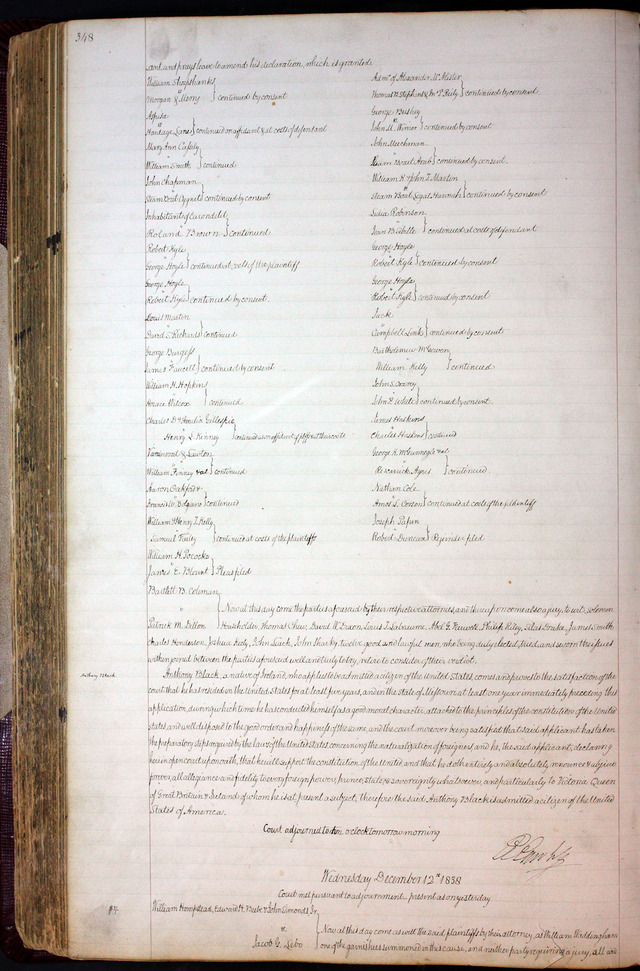 348
and prays leave to amend his declaration, which is granted
William Sheepshanks
Morgan & Merry } continued by consent
Hardage Lane } continued on affidavit & at costs of defendant
Mary Ann
William Smith } continued
John Chapman
Steam Boat Cygnet } continued by consent
Inhabitants of Carondelet
Roland Brown } continued
Robert Kyle
George Hoyle } continued at costs of the plaintiff
George Hoyle
Robert Kyle } continued by consent
Louis Martin
David J. Richards } continued
George Burgess
James Fawcett } continued by consent
William H. Hopkins
Horace Wilcox } continued
Charles D & Gillespie
Henry S. Kenney } continued on affidavit of plff at their costs
& Lawton
William Finney et al } continued
Aaron Oakford &
Edgar } continued
William & Henry T. Kelly
Samuel Farley } continued at costs of the plaintiff
William H. Pococke
James E. Blount } Pleas filed
Admr of Alexander McAlister
Thomas B Stephens & Jno P. Reily } continued by consent
George Busby
John M. Wimer } continued by consent
John Merchman
vs
Steam Boat Arab } continued by consent
William H & John T. Martin
Steam Boat Legal Hannah } continued by consent
Sidia Robinson
Jean Bidelle } continued at costs of defendant
George Hoyle
Robert Kyle } continued by consent
George Hoyle
Robert Kyle } continued by consent
Jack
Campbell Link } continued by consent
Barthelemew McGowen
William Kelly } continued
John S.
John P. White } continued by consent
James Haskins
Charles Haskins } continued
George K. McGunnegle et al
Ayres } continued
Nathan Cole
Amos L. Corson } continued at costs of the plaintiff
Joseph Papin
Robert Duncan } Rejoinder filed
Bartlett B. Coleman
vs
Patrick M. Dillon } Now at this day come the parties aforesaid by their respective attorneys, and thereupon comes also a jury, to wit, Solomon
Householder, Thomas Chew, David W. Dixon, Louis T. Labeaume, Philip Riley, Silas Drake, James Smith
Charles Henderson, Joshua Kerly, John Leach, John Sharky, twelve good and lawful men, who being duly elected, tried, and sworn the issues
within joined between the parties aforesaid well and truly to try, retire to consider of their verdict.
Anthony Black
Anthony Black, a native of Ireland, who applies to be admitted a citizen of the United States, comes and proves to the satisfaction of the
court that he has resided in the United States for at least five years, and in the state of Missouri at least one year immediately preceding this
application, during which time he has conducted himself as a good moral character, attached to the principles of the constitution of the United
States, and well disposed to the good order and happiness of the same, and the court moreover being satisfied that said applicant has taken
the preparatory steps required by the laws of the United States concerning the naturalization of foreigners, and he, the said applicant, declaring
here in open court upon oath, that he will support the constitution of the United and that he doth entirely and absolutely renounce & abjure
forever, all allegiance and fidelity to every foreign power, prince, state, & sovereignty whatsoever, and particularly to Victoria Queen
of Great Britain & Ireland of whom he is at present a subject; therefore the said Anthony Black is admitted a citizen of the United
States of America.
Court adjourned to ten o'clock tomorrow morning
Wednesday December 12th 1838
Court met pursuant to adjournment present as on yesterday
William Hempstead, Edward H. Beebe & John Simonds Jr
vs
Jacob G. Lebo } Now at this day come as well the said plaintiffs by their attorney, as William Waddingham
one of the garnishees summoned in this cause, and neither party requiring a jury, all and